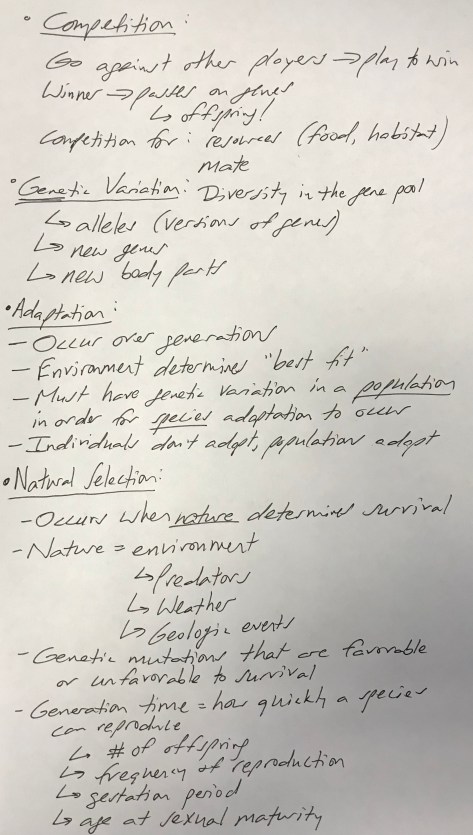 • Competition:
Go against other players → play to win
Winner → passes on genes
↳ offspring!
Competition for: resources (food, habitat)
mate
• Genetic Variation: Diversity in the gene pool
↳ alleles (versions of genes)
↳ new genes
↳ new body parts
• Adaptation:
- Occur over generations
- Environment determines "best fit"
- Must have genetic variation in a population
in order for species adaptation to occur
- Individuals don't adapt, populations adapt
• Natural Selection:
- Occurs when nature determines survival
- Nature = environment
↳ Predators
↳ Weather
↳ Geologic events
- Genetic mutations that are favorable
or unfavorable to survival
- Generation time = how quickly a species
can reproduce
↳ # of offspring
↳ frequency of reproduction
↳ gestation period
↳ age at sexual maturity